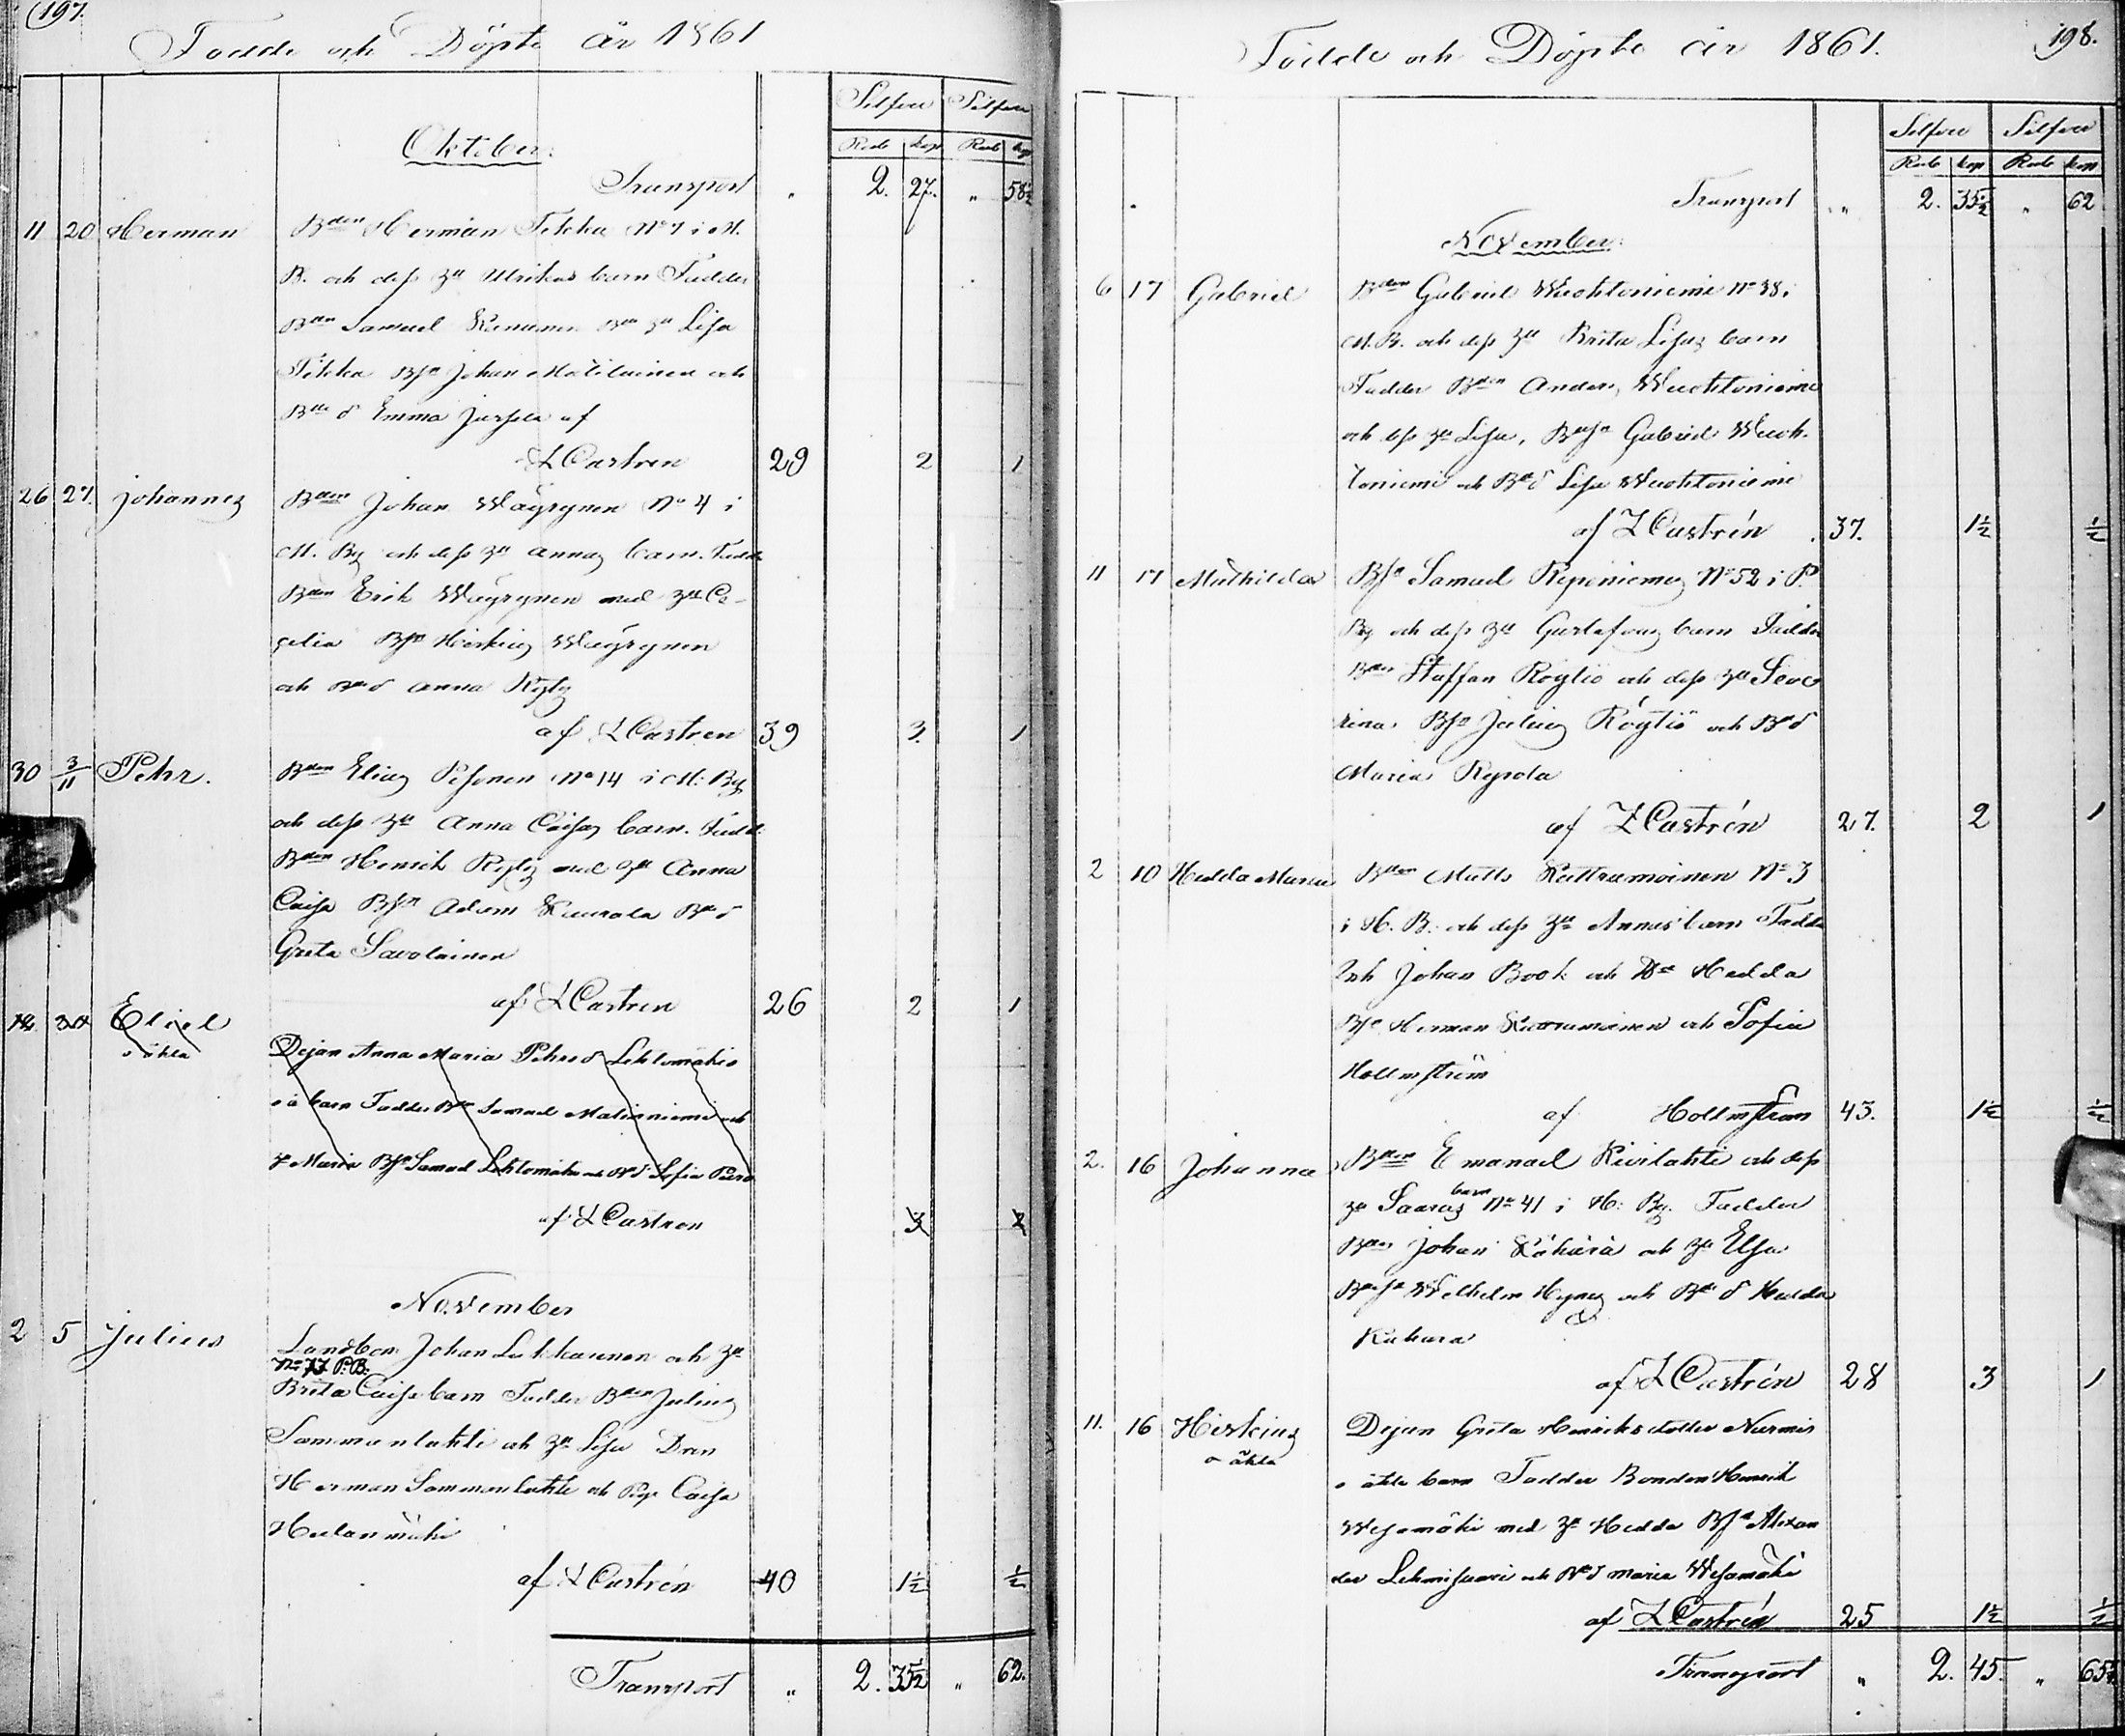 197.
Födde och Döpte år 1861
Silfver Silfver
Oktober:
Rub kop Rub kop
Transport " 2. 27. " 58½
11 20 Herman Bden Herman Tikka No 7 i M.
B. och dess hu Ulrikas barn Fadder
Bden Samuel Keinänen Bde hu Lisa
Tikka Bsn Johan Matilainen och
Bde d Emma
L Castren 29 2 1
26 27. Johannes Bden Johan Wäyrynen No 4 i
M. By och dess hu Annas barn. Fadd
Bden Erik Wäyrynen med hu Ce-
celia Bsn Hiskias Wäyrynen
och Bde d Anna
af L Castren 39 3. 1
30 3/11 Pehr. Bden Elias Pesonen No 14 i M: By
och dess hu Anna Caisas barn. Fadd.
Bden Henrik med hu Anna
Caisa Bsn Adam Bde d
Greta Savolainen
af L Castren 26 2 1
Eliel
oäkta
Dejan Anna Maria Pehrs d Lehtomäkis
oä barn Fadder Bde Samuel Malinniemi och
h Maria Bsn Samuel Lehtomäki och Bd Sofia
af L Castren 3 2
November
2 5 Julius Landbon Johan Lukkarinen och hu
No 77 P.B.
Brita Caisas barn Fadder Bden Julius
Sammanlahti och hu Lisa Drn
Herman Sammanlahti och Pig Caisa
af L Castrén 40 1½ ½
Transport " 2. 35½ " 62.
Födde och Döpte år 1861. 198.
Silfver Silfver
Rub kop Rub kop
Transport " 2. 35½ " 62
November:
6 17 Gabriel Bden Gabriel Wuohtoniemi No 38 i
M. B. och dess hu Brita Lisas barn
Fadder Bden Anders Wuohtoniemi
och dess hu Lisa, Bdesn Gabriel Wuoh-
toniemi och Bde d Lisa Wuohtoniemi
af L Castrén 37. 1½ ½
11 17 Mathilda Bsn Samuel Reponiemis No 52 i P.
By och dess hu Gustafvas barn Fadder
Bden Staffan Röytiö och dess hu Seve
rina Bsn Julius Röytiö och Bde d
Maria
af L Castrén 27. 2 1
2 10 Hedda Maria Bden Matts No 3
i H. B. och dess hu Annas barn Fadder
Inh Johan Book och Hedda
Bsn Herman och Sofia
Hollmström
af Hollmström 43. 1½ ½
2. 16 Johanna Bden Emanuel Kivilahti och dess
barn
hu Saaras No 41 i H: By. Fadder
Bden Johan Kähärä och hu Elsa
Bdesn Wilhelm och Bde d Hedda
Kähärä
af L Castrén 28 3 1
11. 16 Hiskias Dejan Greta Henriksdotter Nurmis
oäkta
oäkta barn Fadder Bonden Henrik
Wesamäki med hu Hedda Bsn Alexan
der och Bde d Maria Wesamäki
af L Castrén 25 1½ ½
Transport " 2. 45. " 65½